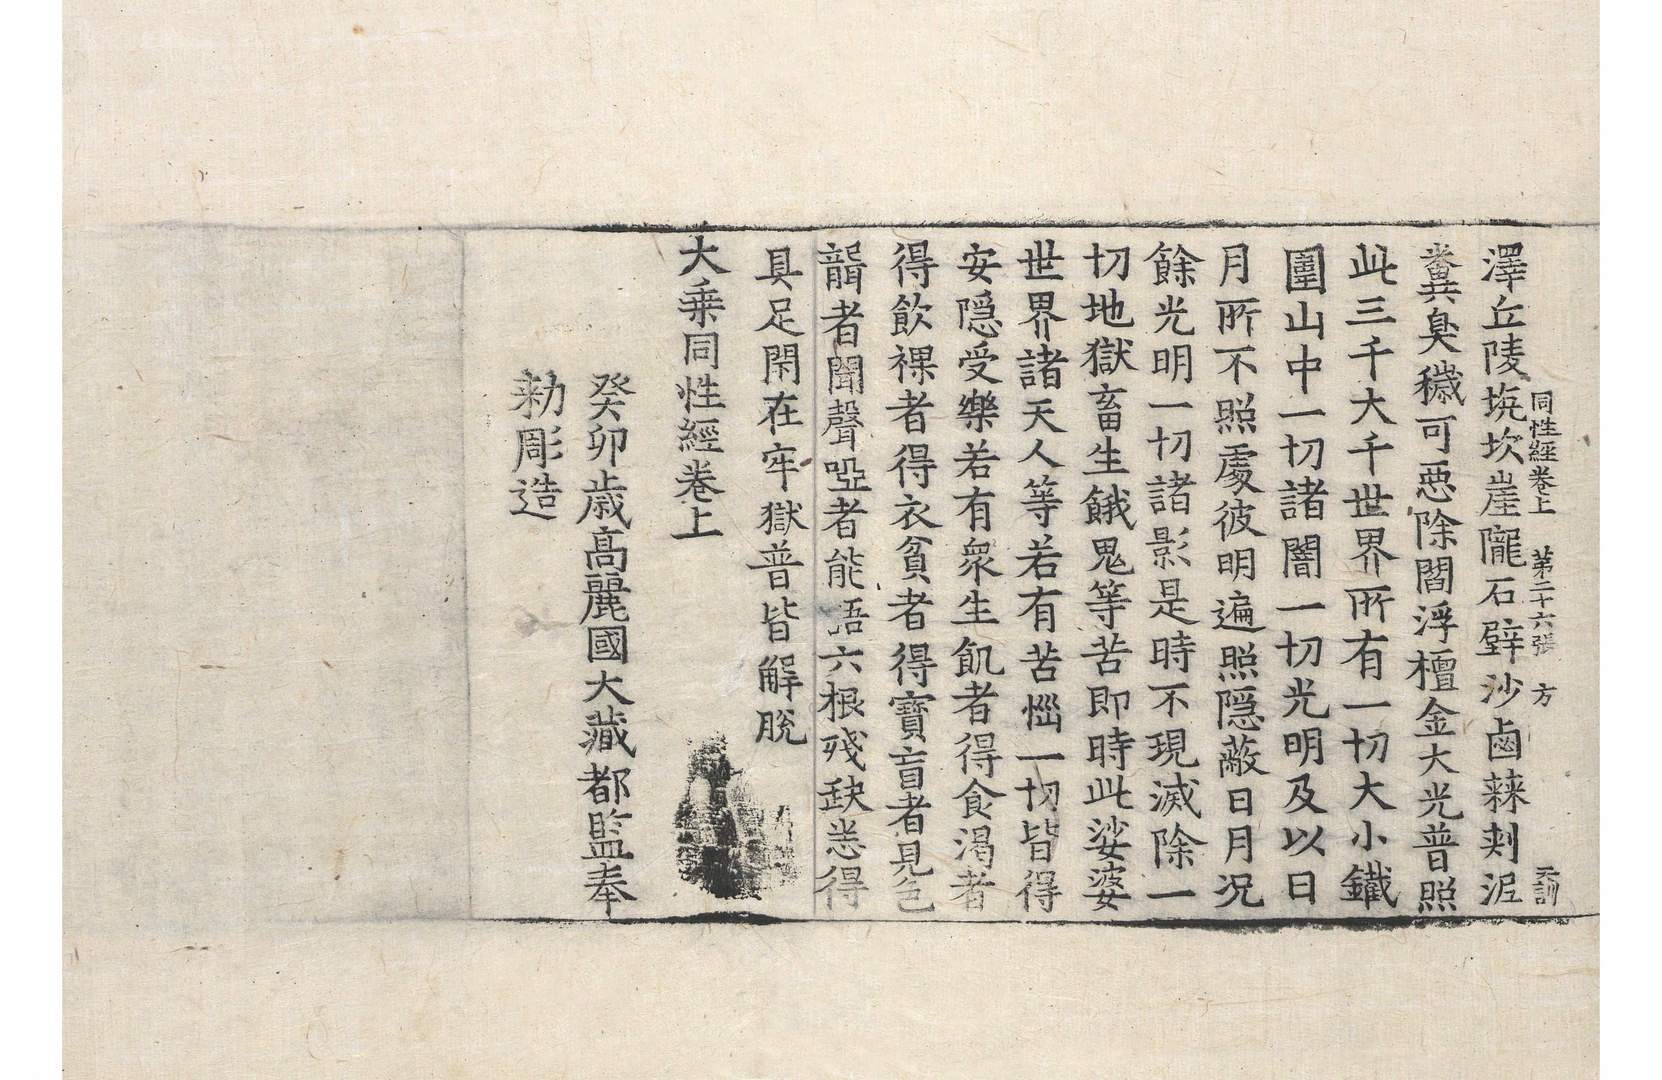 同性經卷上 第二十六張 方 天訓
澤丘陵坑坎崖隴石壁沙鹵棘刺泥
糞臭穢可惡除閻浮檀金大光普照
此三千大千世界所有一切大小鐵
圍山中一切諸闇一切光明及以日
月所不照處彼明遍照隱蔽日月况
餘光明一切諸影是時不現滅除一
切地獄畜生餓鬼等苦即時此娑婆
世界諸天人等若有苦惱一切皆得
安隱受樂若有衆生飢者得食渴者
得飲裸者得衣貧者得寶盲者見色
聾者聞聲啞者能語六根殘缺悉得
具足閑在牢獄普皆解脫
大乗同性經卷上
癸卯歲高麗國大藏都監奉
勑彫造